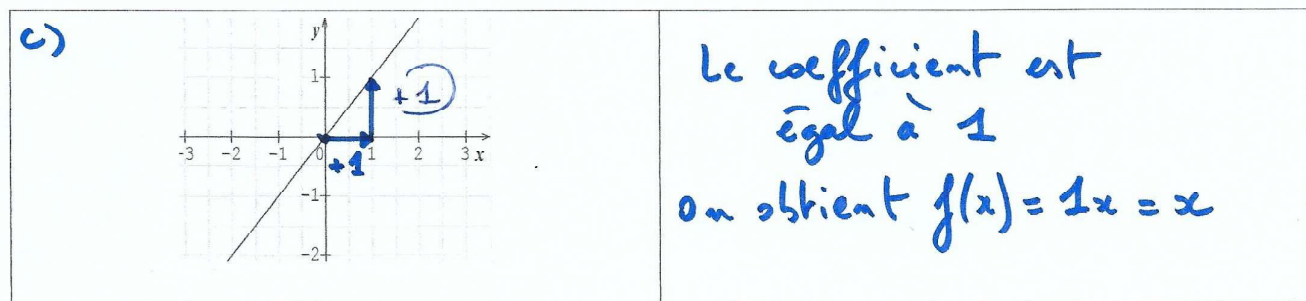 c)
y
1
+1
-3 -2 -1 0 1 2 3 x
+1
-1
-2
Le coefficient est
égal à 1
on obtient f(x) = 1x = x